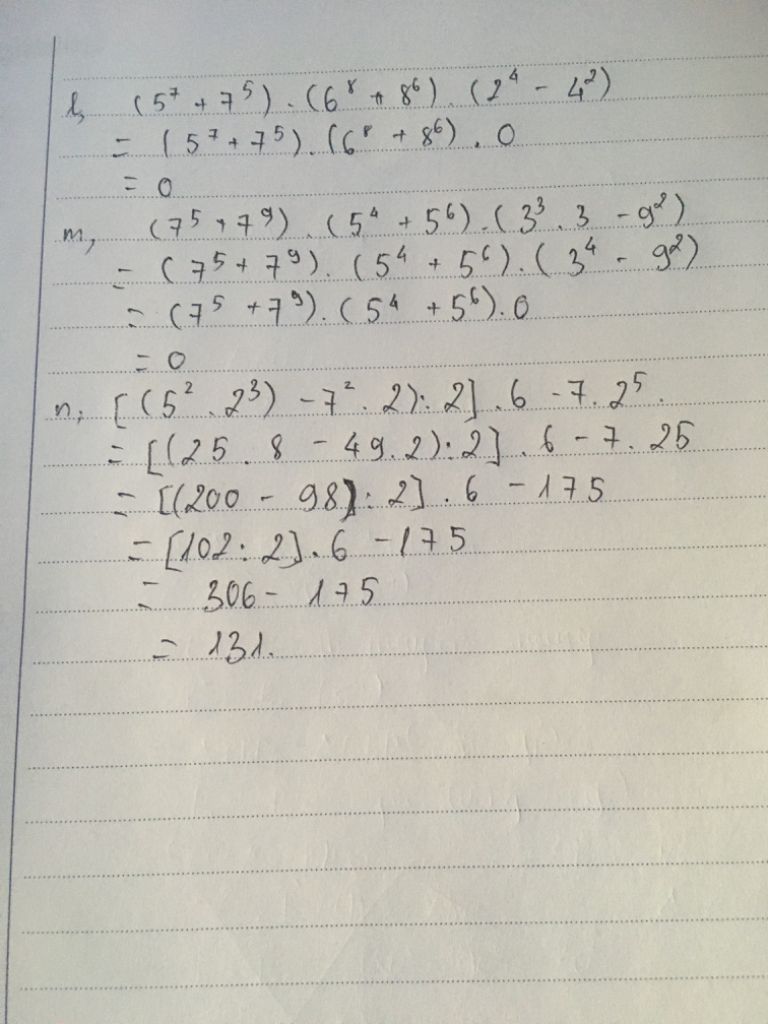 l, (5⁷ + 7⁵) . (6⁸ + 8⁶) . (2⁴ - 4²)
= (5⁷ + 7⁵) . (6⁸ + 8⁶) . 0
= 0
m, (7⁵ + 7⁹) . (5⁴ + 5⁶) . (3³ . 3 - 9²)
= (7⁵ + 7⁹) . (5⁴ + 5⁶) . (3⁴ - 9²)
= (7⁵ + 7⁹) . (5⁴ + 5⁶) . 0
= 0
n, [(5² . 2³) - 7² . 2) : 2] . 6 - 7 . 2⁵ .
= [(25 . 8 - 49 . 2) : 2] . 6 - 7 . 25
= [(200 - 98) : 2] . 6 - 175
= [102 : 2] . 6 - 175
= 306 - 175
= 131.